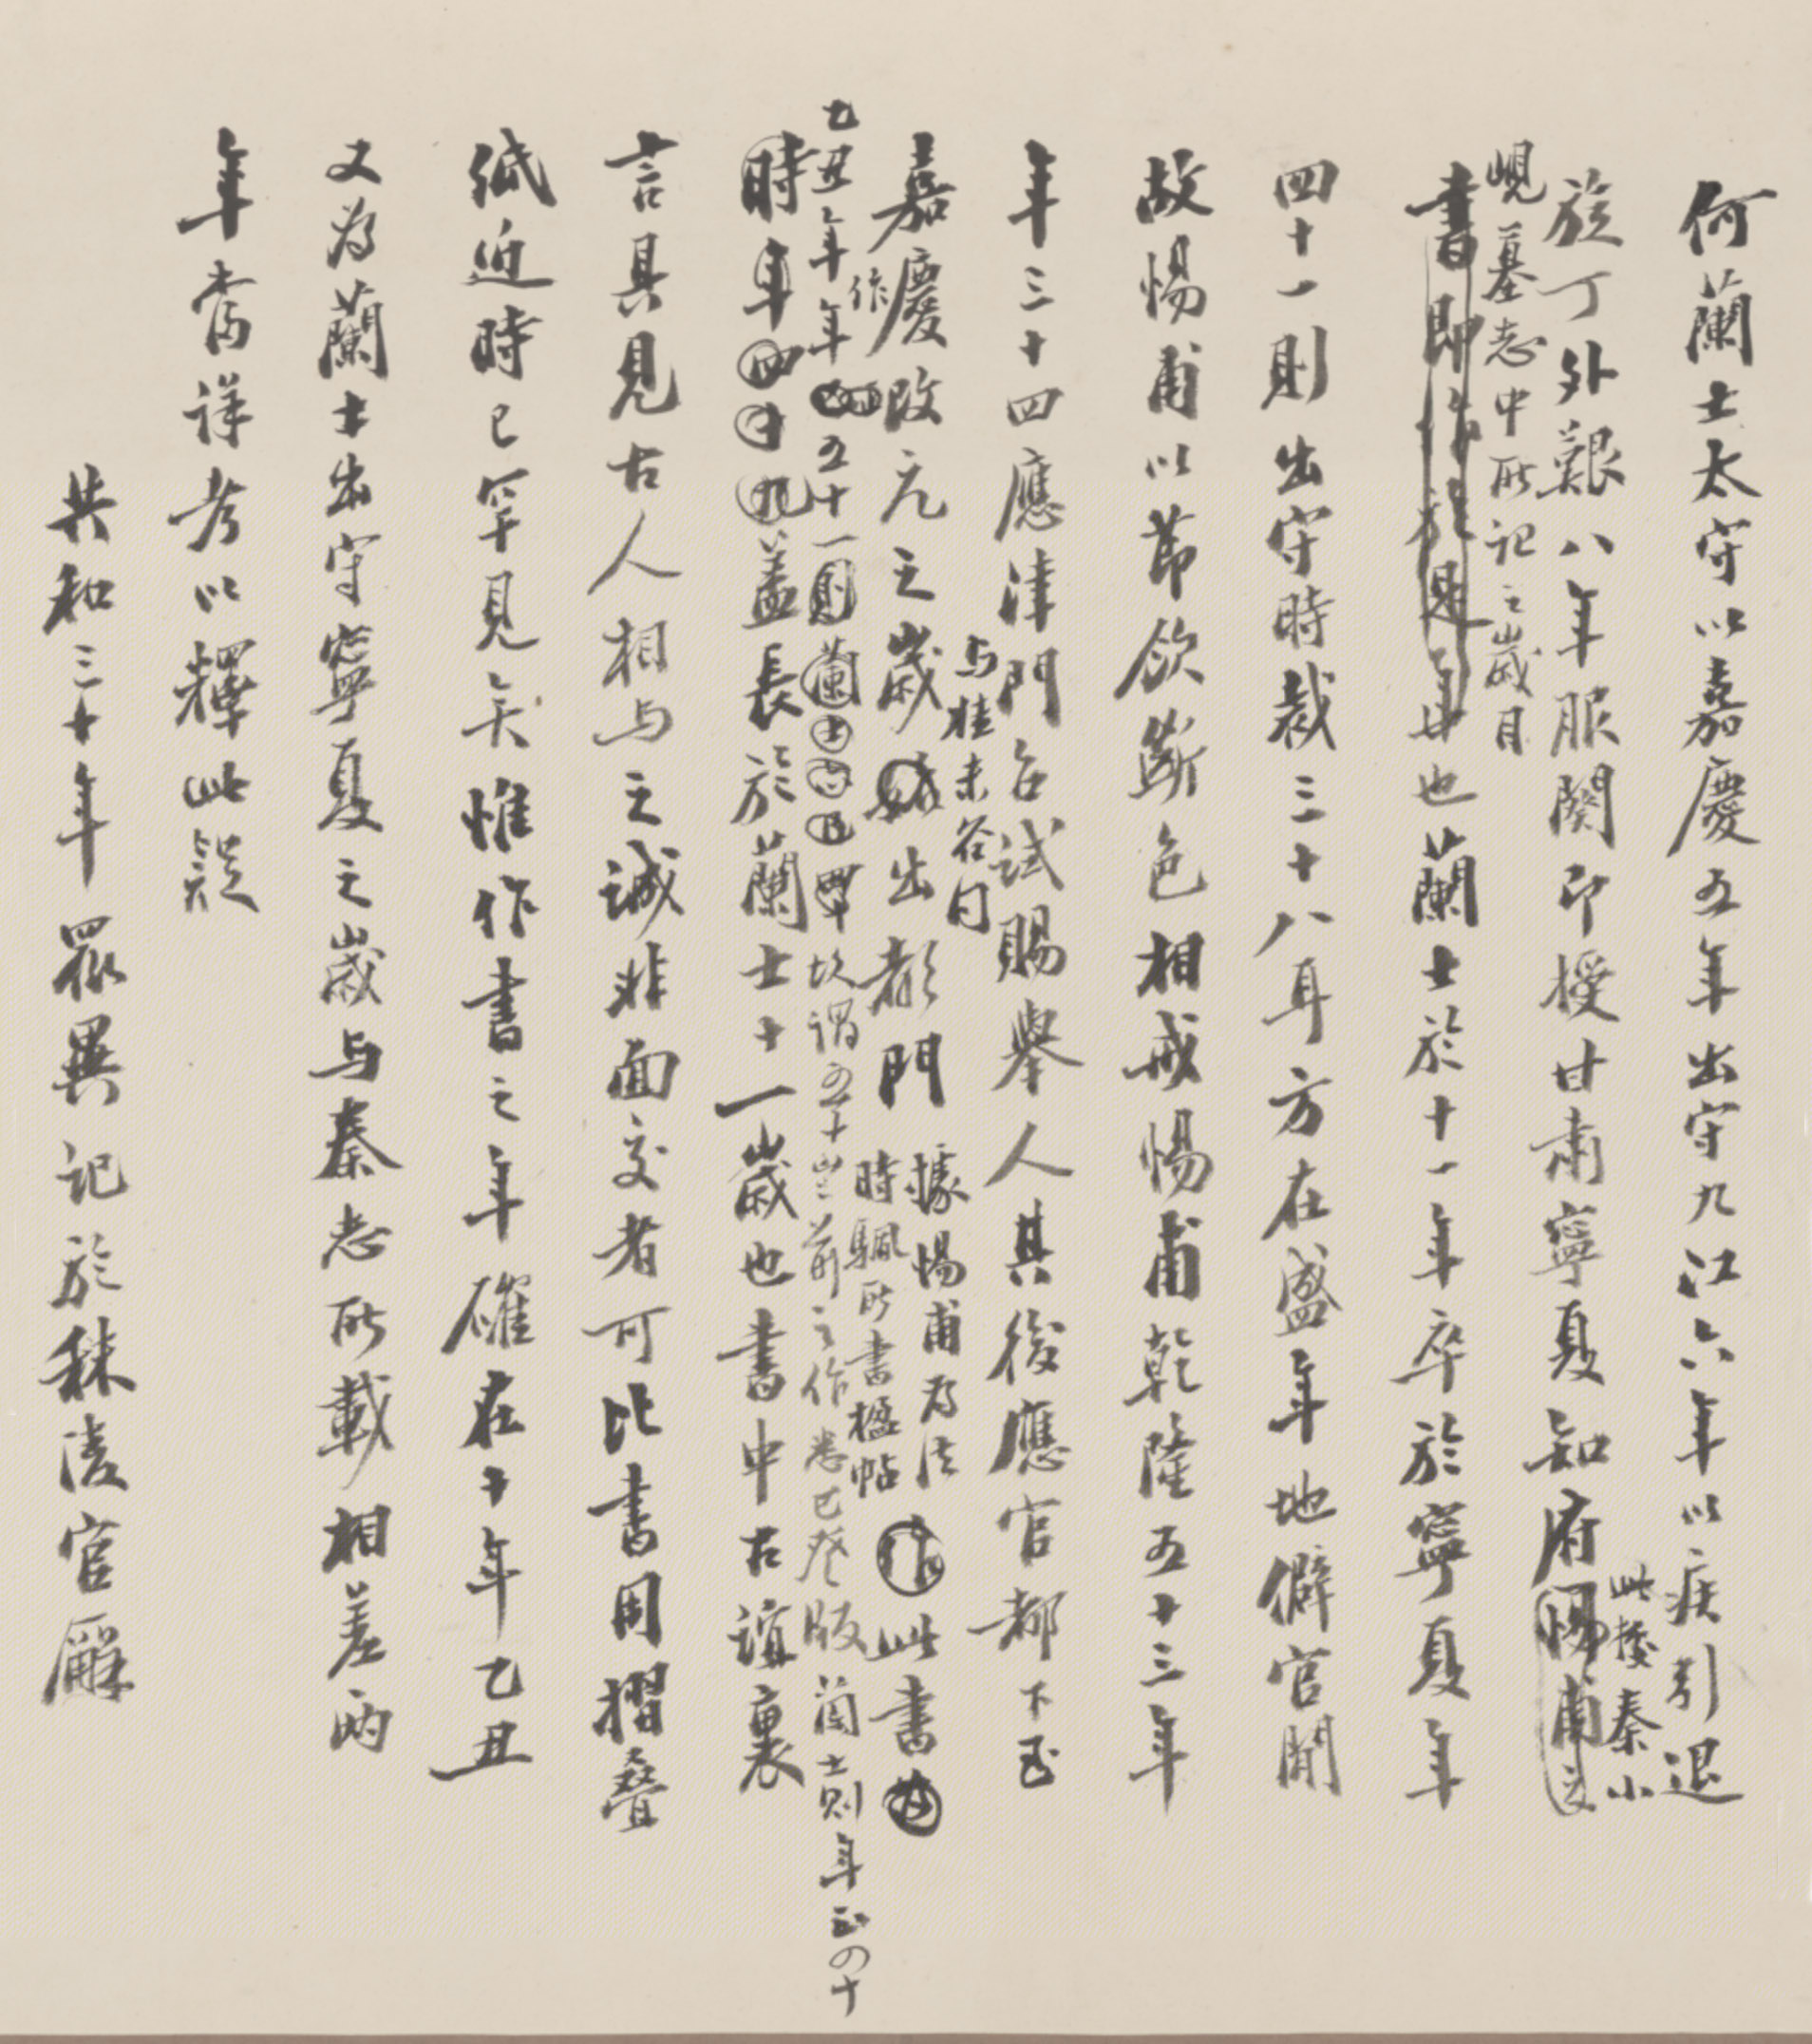 何蘭士太守以嘉慶五年出守九江六年以疾引退
旋丁外艱八年服闋即授甘肅寧夏知府惕甫
此據秦小
峴墓志中所記之歲月
書即作於是年也蘭士於十一年卒於寧夏年
四十一則出守時裁三十八耳方在盛年地僻官閒
故惕甫以節飲斷色相戒惕甫乾隆五十三年
年三十四應津門召試賜舉人其後應官都下至
嘉慶改元之歲出都門
与桂未谷同
據惕甫為法
時驅所書楹帖
作此書
作
乙丑年年五十一則蘭士
故謂五十歲前之作悉已發版蘭士則年正四十
時年四十九蓋長於蘭士十一歲也書中古誼裏
言具見古人相与之誠非面交者可比書用摺疊
紙近時已罕見矣惟作書之年確在十年乙丑
又為蘭士出守寧夏之歲与秦志所載相差兩
年當詳考以釋此疑
共和三十年眾異記於秣陵官廨